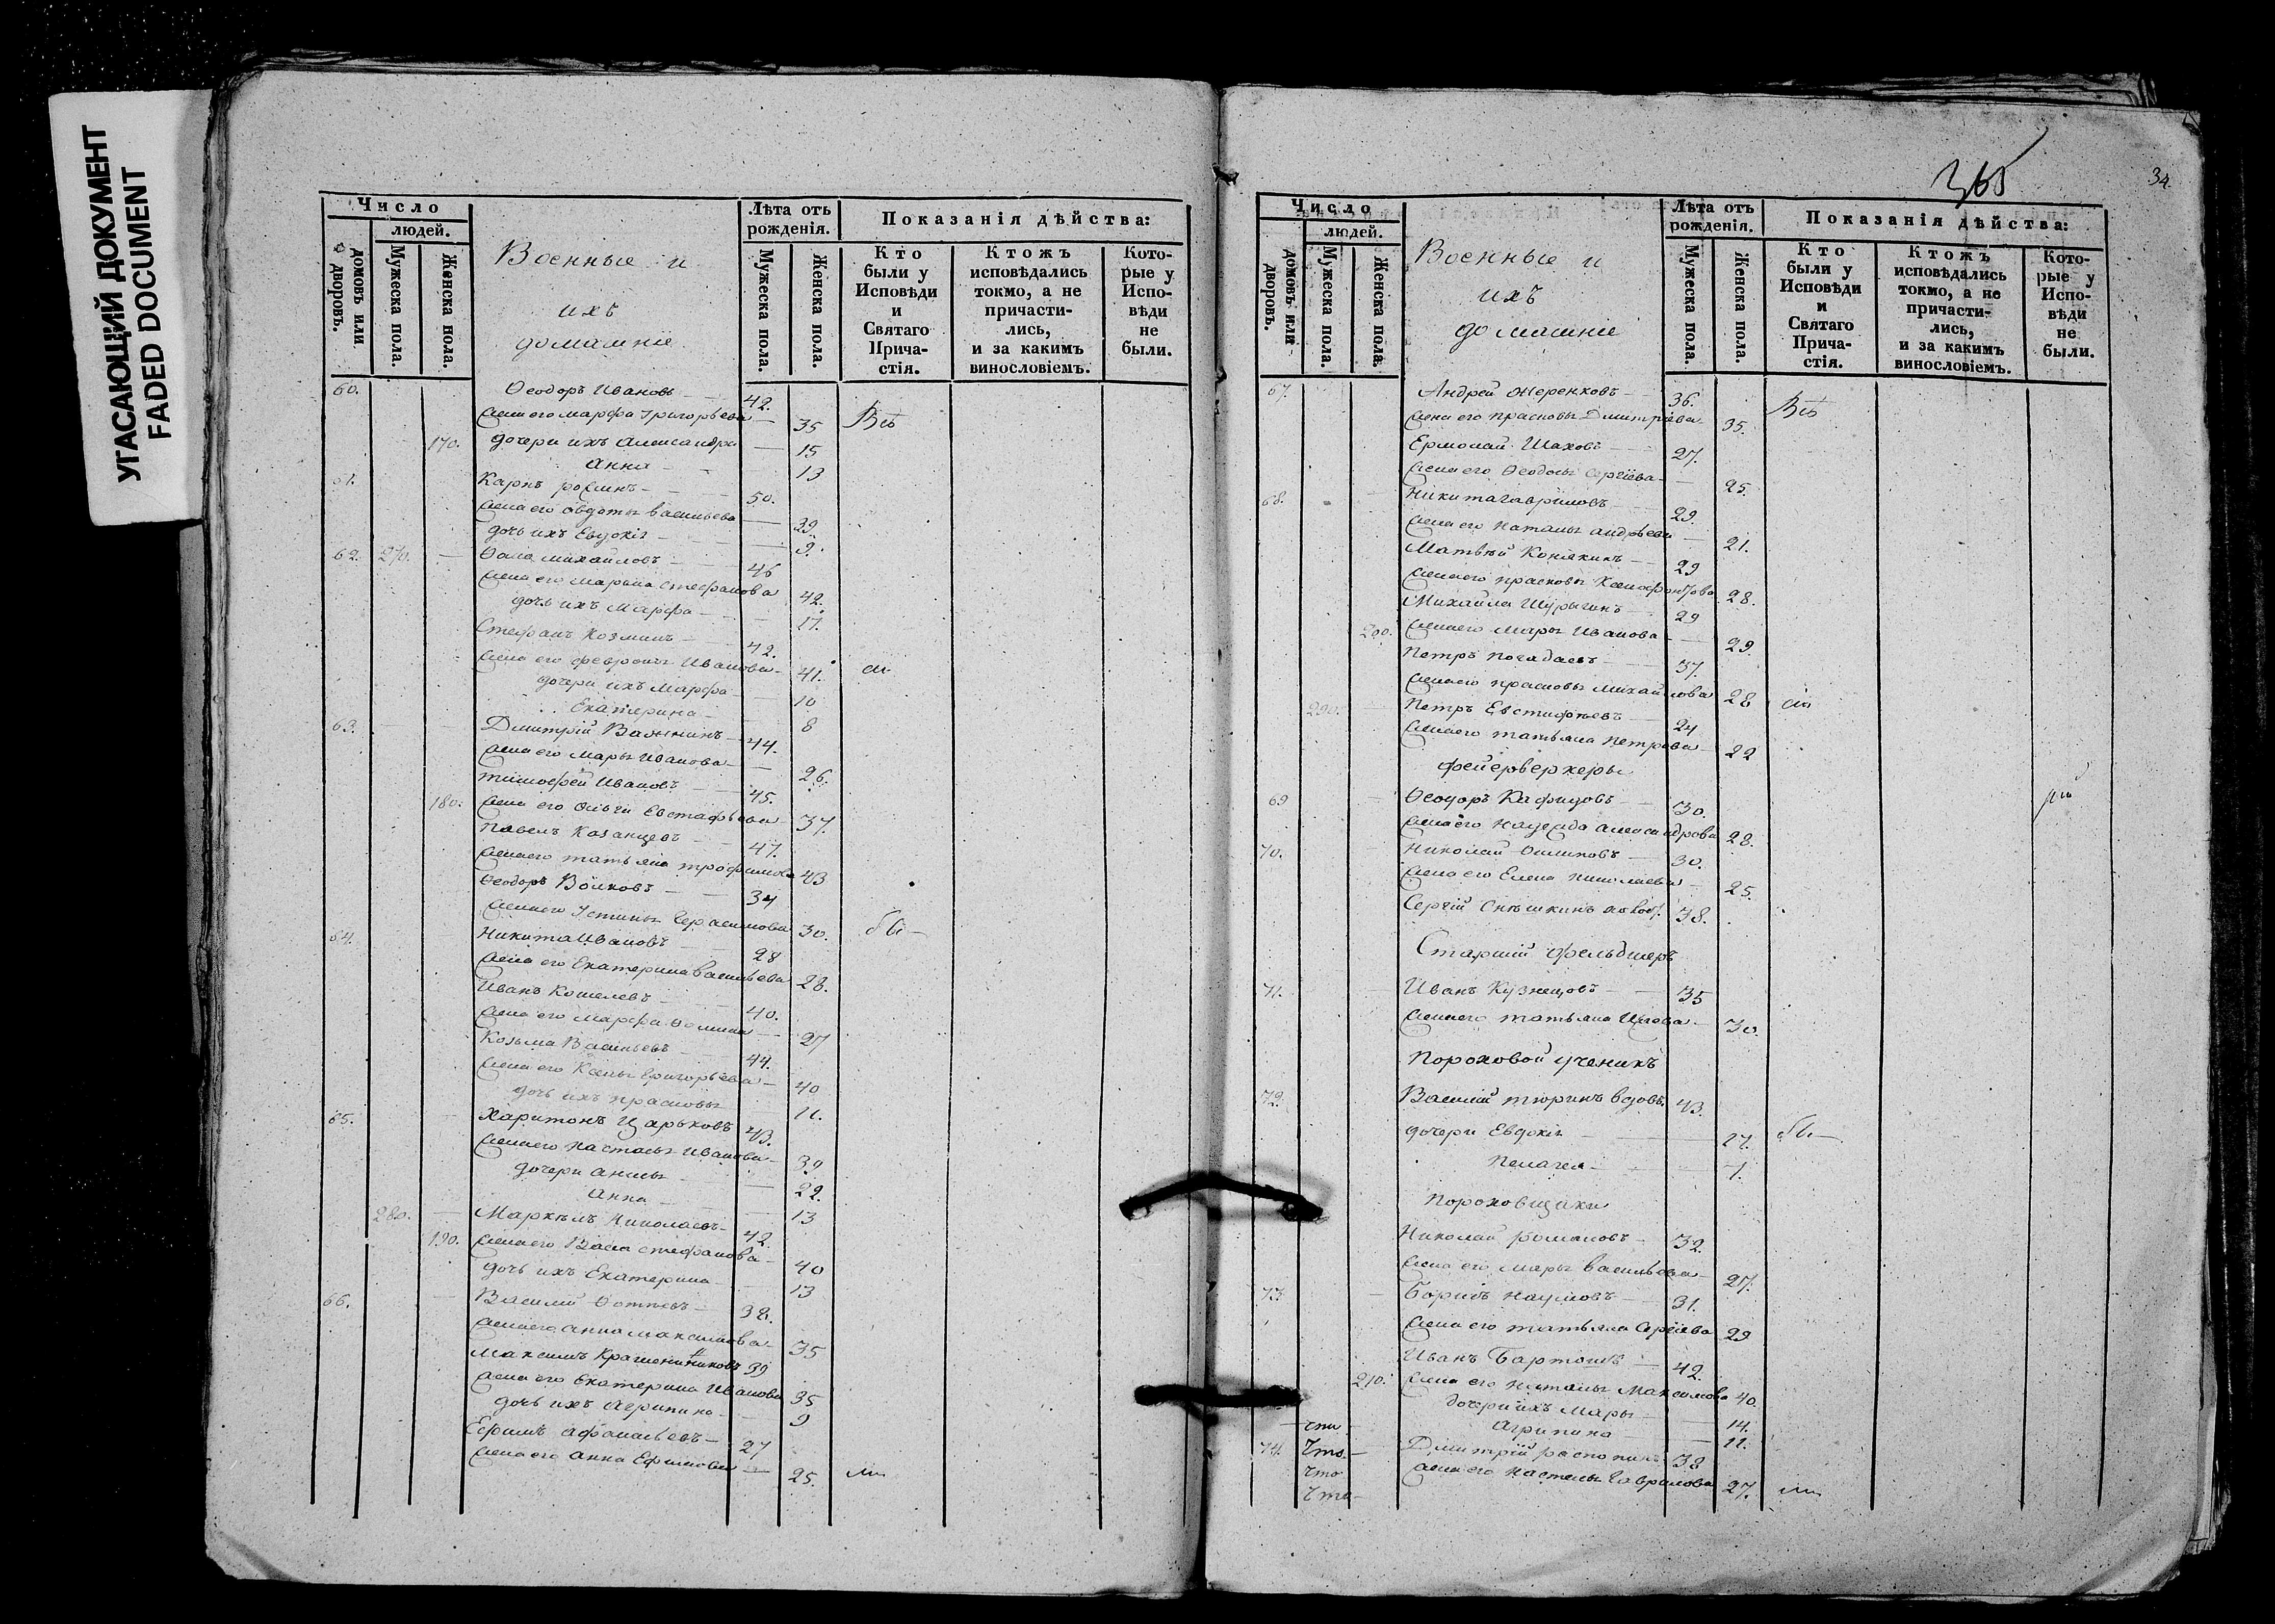 УГАСАЮЩИЙ ДОКУМЕНТ
FADED DOCUMENT
Число
людей.
домовъ или дворовъ.
Мужеска пола.
Женска пола.
Военные и
ихъ
домашніе
Лѣта отъ рожденія.
Мужеска пола.
Женска пола.
Показанія дѣйства:
Кто были у Исповѣди и Святаго Прича-стія.
Ктожъ исповѣдались токмо, а не причасти-лись, и за какимъ винословіемъ.
Кото-рые у Испо-вѣди не были.
60. Ѳеодоръ Ивановъ 42.
жена его Марфа Григорьева 35 Всѣ
170. дочери ихъ Александра 15
Анна 13
61. Карпъ 50.
жена его Авдотья Васильева 29.
дочь ихъ Евдокія 9.
62. 270. Ѳома Михайловъ 46
жена его Марья Стефанова 42.
дочь ихъ Марфа 17.
Стефанъ Козминъ 42.
жена его Февронья Иванова 41.
дочери ихъ Марфа 10
Екатерина 8
63. Дмитрій Важнинъ 44.
жена его Марья Иванова 26.
Тимофей Ивановъ 45.
180. жена его Ольга Евстафьева 37.
Павелъ Казанцевъ 47.
жена его Татьяна Трофимова 43
Ѳеодоръ Волковъ 34
жена его Устинья Герасимова 30. бы
64. Никита Ивановъ 28
жена его Екатерина Васильева 28.
Иванъ Кошелевъ 40.
жена его Марфа Ѳомина 27
Козьма Васильевъ 44.
жена его Ксенья Григорьева 40
дочь ихъ Прасковья 11.
65. Харитонъ Царьковъ 43.
жена его Настасья Иванова 39
дочери 22.
Анна 13
280. Маркелъ Николаевъ 42.
190. жена его Васса Стефанова 40
дочь ихъ Екатерина 13
66. Василій Ѳотіевъ 38.
жена его Анна Максимова 35
Максимъ Крашенинниковъ 39
жена его Екатерина Иванова 35
дочь ихъ Агрипина 9
Ефимъ Афанасьевъ 27
жена его Анна Ефимова 25. ли
365
34.
Число
людей.
домовъ или дворовъ.
Мужеска пола.
Женска пола.
Военные и
ихъ
домашніе
Лѣта отъ рожденія.
Мужеска пола.
Женска пола.
Показанія дѣйства:
Кто были у Исповѣди и Святаго Прича-стія.
Ктожъ исповѣдались токмо, а не причасти-лись, и за какимъ винословіемъ.
Кото-рые у Испо-вѣди не были.
67. Андрей Жеренковъ 36.
жена его Прасковья Дмитріева 35. Всѣ
Ермолай Шаховъ 27.
жена его Ѳеодосья Сергіева 25.
68. Никита Гавриловъ 29.
жена его Наталья Андреева 21.
Матвѣй Конякинъ 29
жена его Прасковья Ксенофонтова 28.
Михайла Шурыгинъ 29
200. жена его Марья Иванова 29.
Петръ 37.
жена его Прасковья Михайлова 28
290. Петръ Евстифѣевъ 24
жена его Татьяна Петрова 22
фейерверкеры
69 Ѳеодоръ Кафидовъ 30.
жена его Надежда Александрова 28.
70. Николай 30.
жена его Елена Николаева 25.
Сергій Снѣшкинъ 38.
Старшій фельдшеръ
71. Иванъ Кузнецовъ 35
жена его Татьяна 30.
Пороховой ученикъ
72. Василій Тюринъ вдовъ. 43.
дочери Евдокія 27. бы
Пелагея 7.
Пороховщики
Николай Романовъ 32.
жена его Марья Васильева 27.
73. Борисъ Наумовъ 31.
жена его Татьяна Сергіева 29
Иванъ Бартошъ 42.
210. жена его Наталья Максимова 40.
дочери ихъ Марья 14.
Агрипина 11.
74. Дмитрій Распопинъ 38
жена его Настасья Гаврилова 27. ли